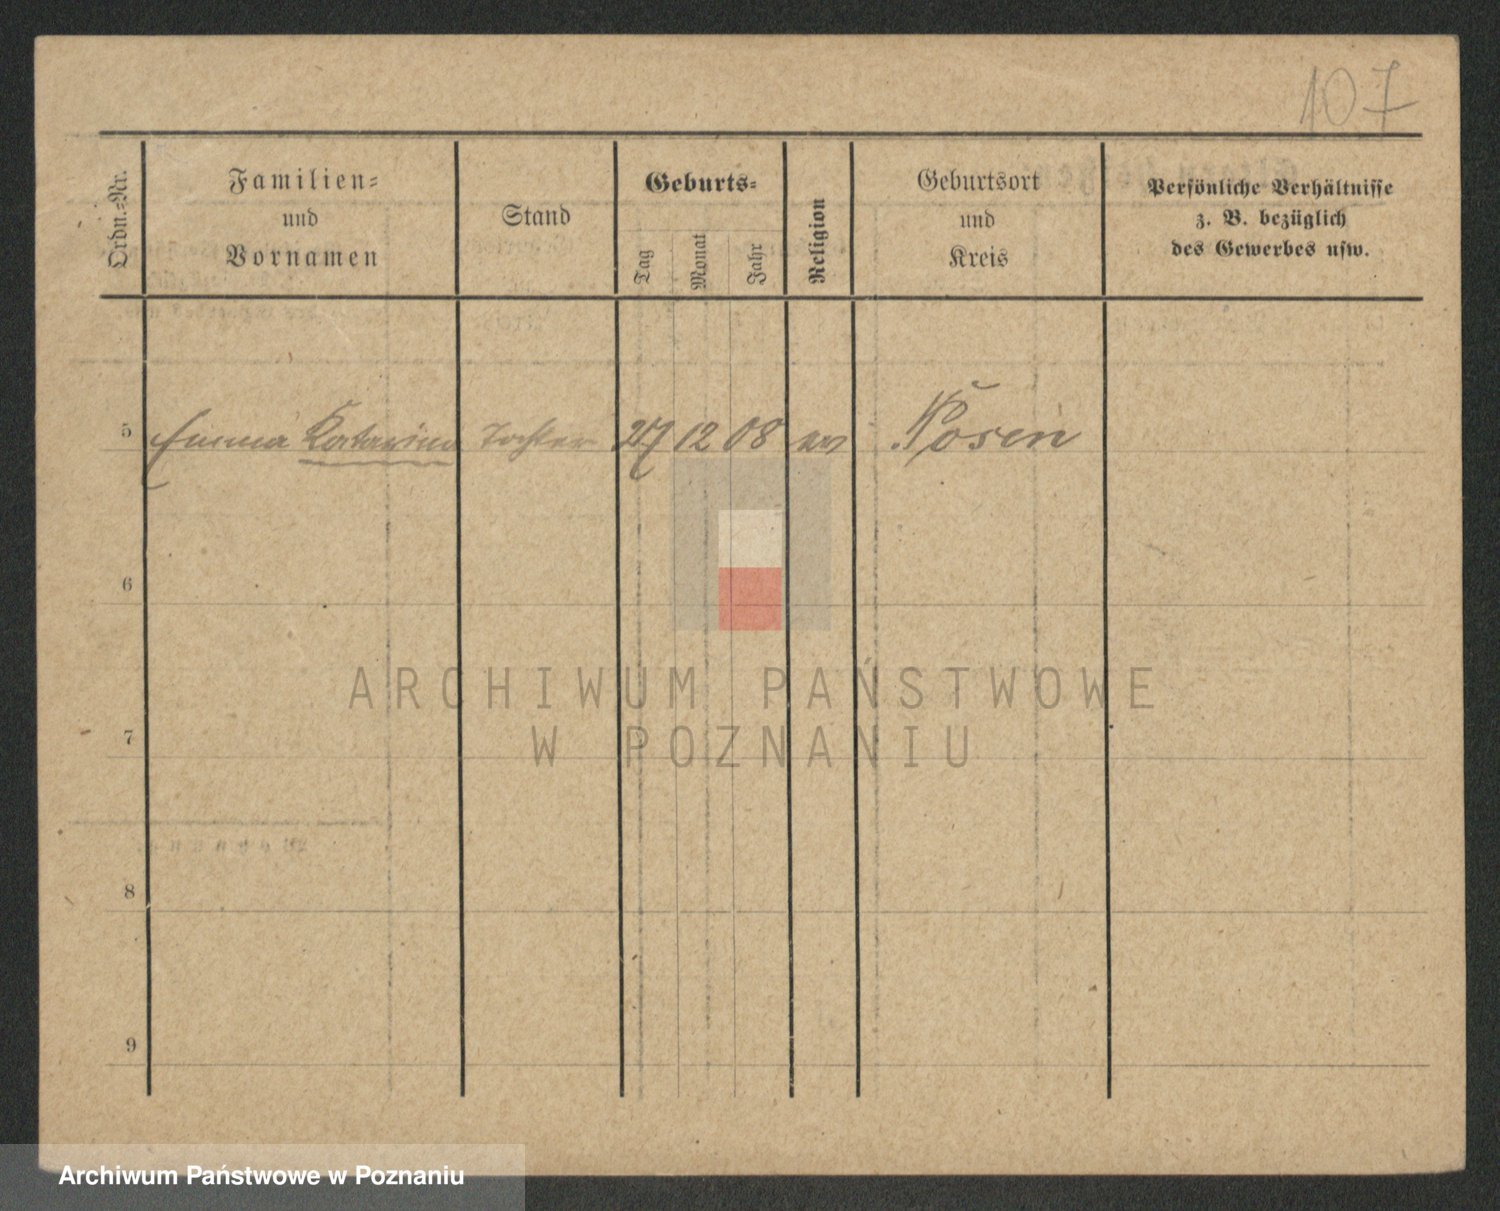 107
Ordn.-Nr.
Familien-
und
Vornamen
Stand
Geburts-
Tag
Monat
Jahr
Religion
Geburtsort
und
Kreis
Persönliche Verhältnisse
z. B. bezüglich
des Gewerbes usw.
5 Emma Katarina Tochter 27 12 08 ev Posen
6
ARCHIWUM PAŃSTWOWE
W POZNANIU
7
8
9
Archiwum Państwowe w Poznaniu